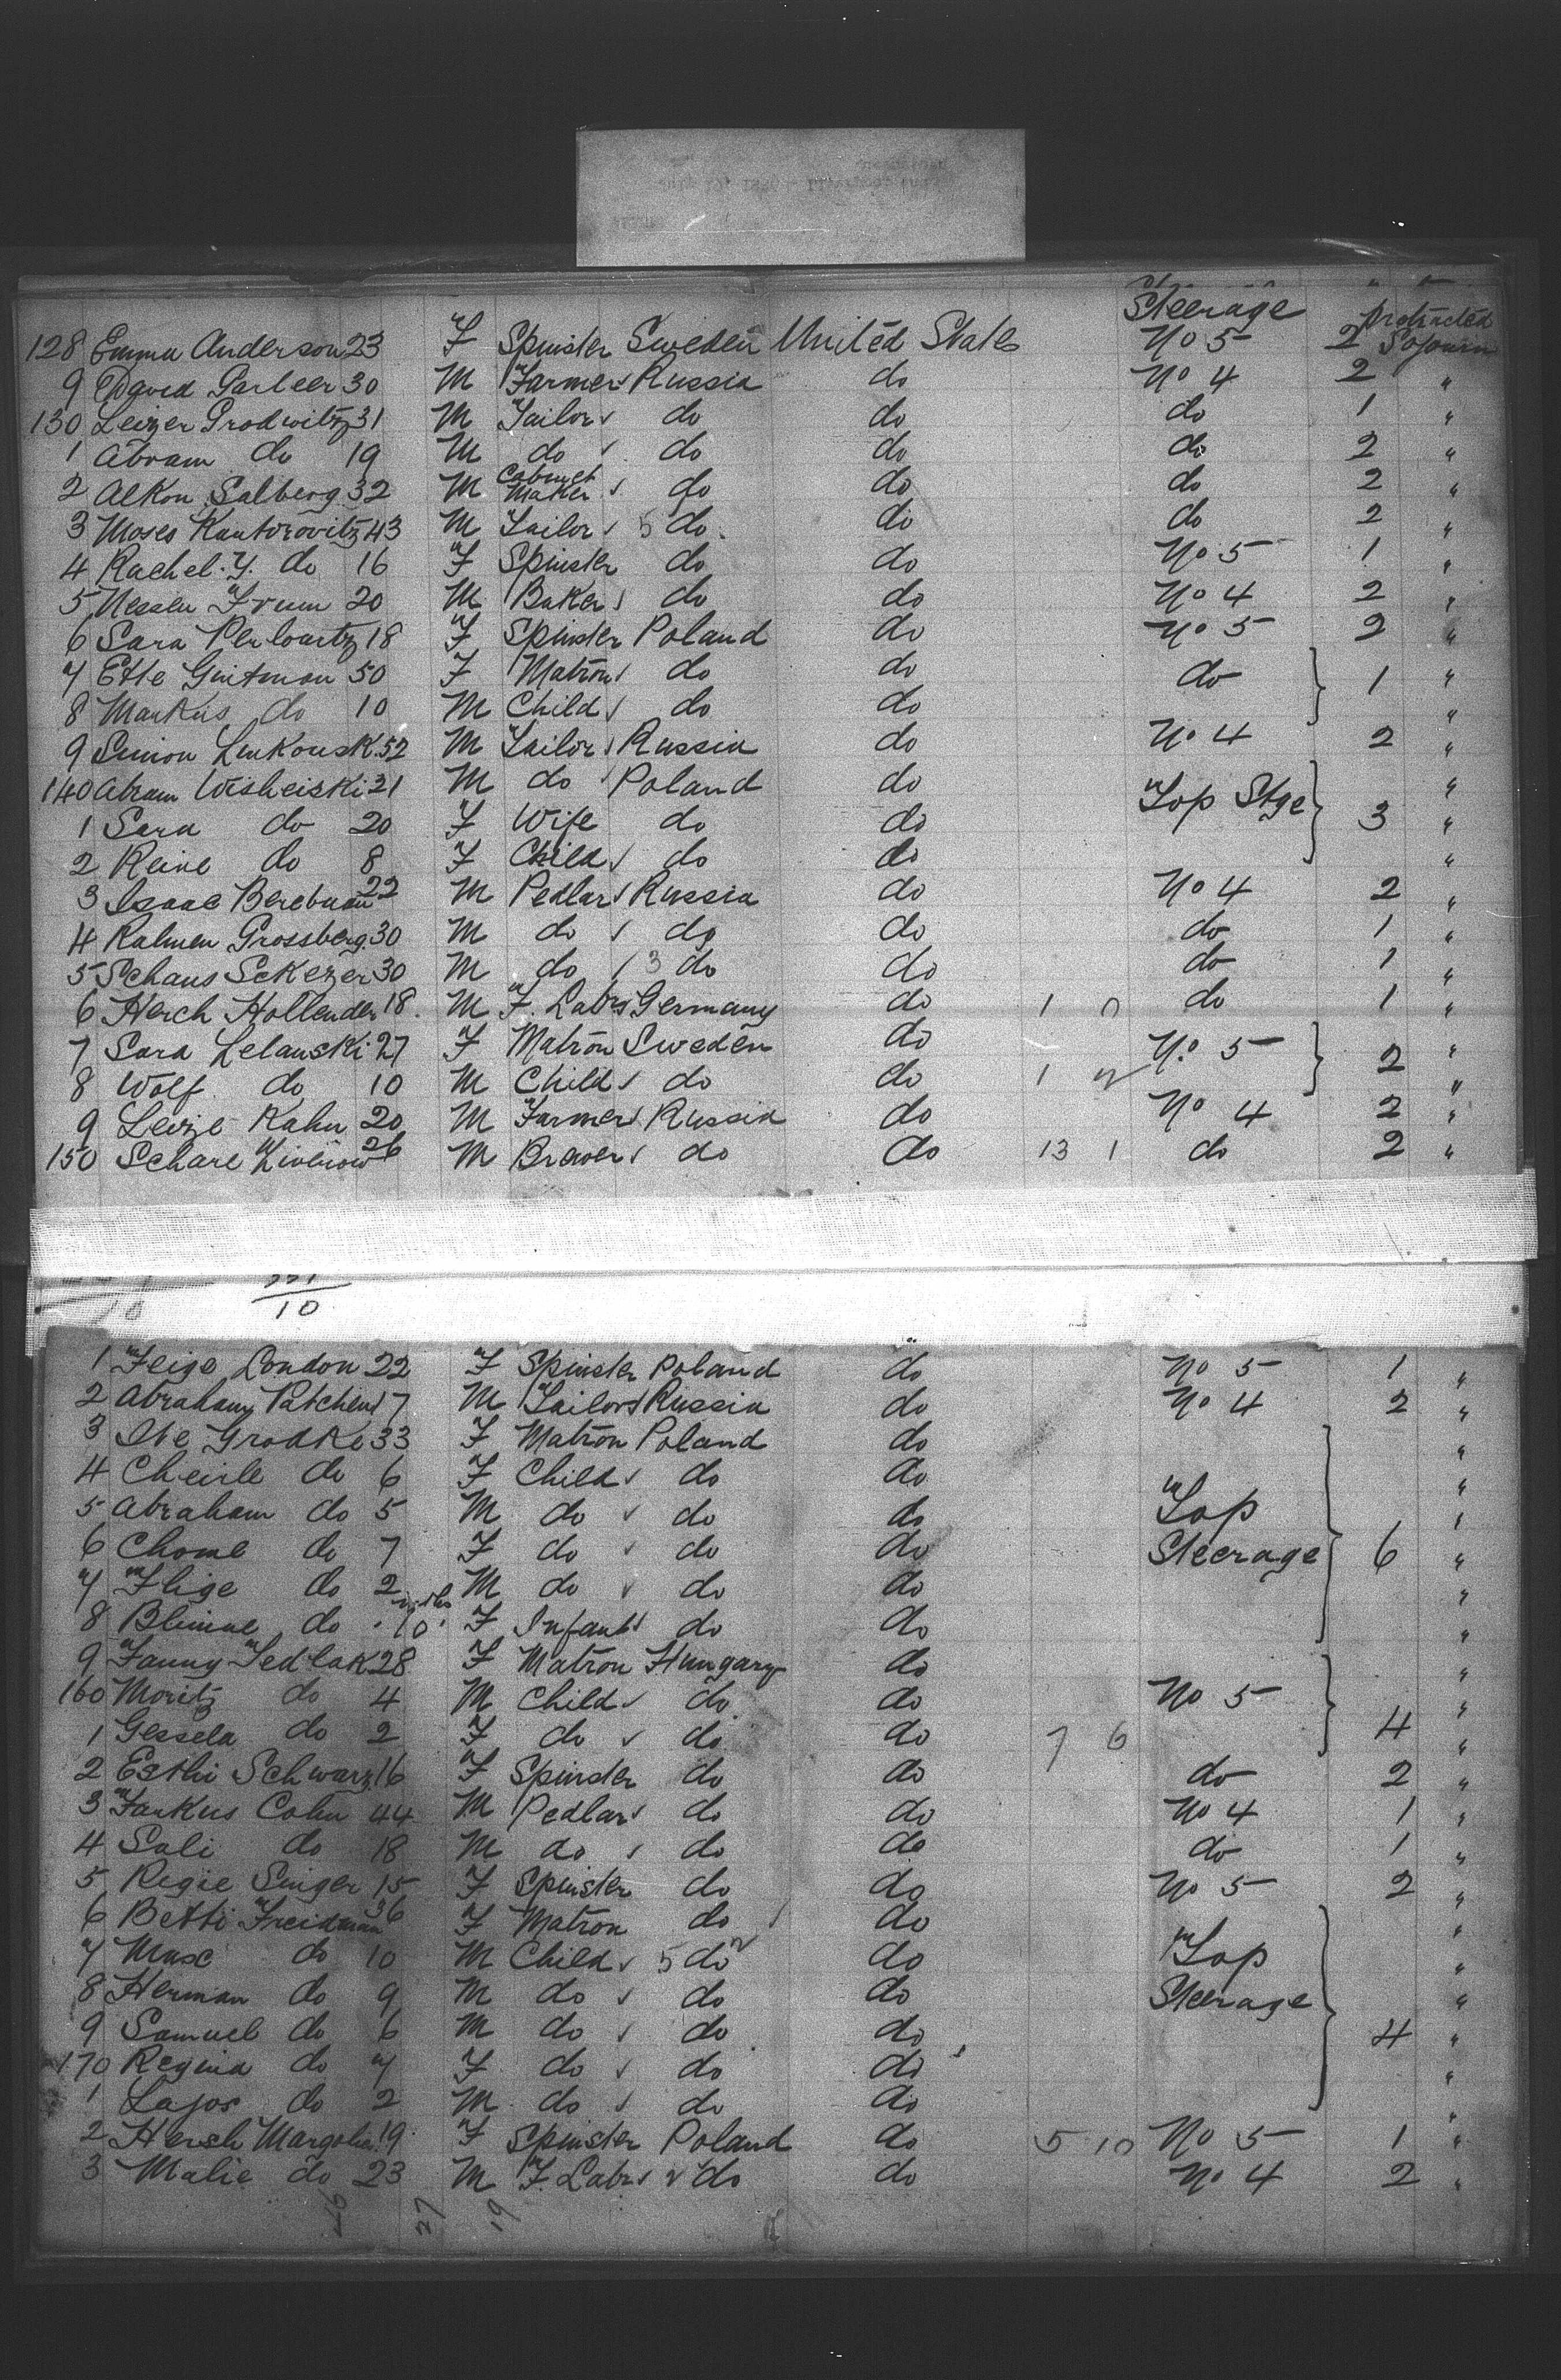 Steerage Protracted
128 Emma Anderson 23 F Spinster Sweden United States No 5 2 Sojourn
9 David Garleer 30 M Farmer Russia do No 4 2 "
130 Leizer Grodwitz 31 M Tailor do do do 1 "
1 Abram do 19 M do do do do 2 "
2 Alkon Salberg 32 M Cabinet Maker do do do 2 "
3 Moses Kantorovitz 43 M Tailor 5 do do do 2 "
4 Rachel Y. do 16 F Spinster do do No 5 1 "
5 Nessen Frum 20 M Baker do do No 4 2 "
6 Sara Perlwartz 18 F Spinster Poland do No 5 2 "
7 Ette Guitman 50 F Matron do do do 1 "
8 Markus do 10 M Child do do "
9 Simon Linkousk 52 M Tailor Russia do No 4 2 "
140 Abram Wisheiski 21 M do Poland do Top Stge 3 "
1 Sara do 20 F Wife do do "
2 Reine do 8 F Child do do "
3 Isaac Berebman 22 M Pedlar Russia do No 4 2 "
4 Kalmen Grossberg 30 M do do do do 1 "
5 Schaus Sckezer 30 M do 3 do do do 1 "
6 Herch Hollender 18 M F. Labr Germany do 1 0 do 1 "
7 Sara Lelauski 27 F Matron Sweden do No 5 2 "
8 Wolf do 10 M Child do do 1 "
9 Leize Kahn 20 M Farmer Russia do No 4 2 "
150 Schare 26 M Brewer do do 13 1 do 2 "
10
1 Feige London 22 F Spinster Poland do No 5 1 "
2 Abraham Patchen 17 M Tailor Russia do No 4 2 "
3 Ite Grodke 33 F Matron Poland do "
4 Cheirle do 6 F Child do do "
5 Abraham do 5 M do do do Top
6 Chome do 7 F do do do Steerage 6 "
7 Flige do 2 M do do do "
8 Blimme do 10 mths F Infant do do "
9 Fanny Tedlak 28 F Matron Hungary do "
160 Moritz do 4 M Child do do No 5 "
1 Gessela do 2 F do do do 7 6 4 "
2 Esthi Schwarz 16 F Spinster do do do 2 "
3 Jankus Cohn 44 M Pedlar do do No 4 1 "
4 Sali do 18 M do do do do 1 "
5 Regie Singer 15 F Spinster do do No 5 2 "
6 Betti Freidman 36 F Matron do do "
7 Max do 10 M Child 5 do do Top "
8 Herman do 9 M do do do Steerage "
9 Samuel do 6 M do do do 4 "
170 Regina do 7 F do do do "
1 Lajos do 2 M do do do "
2 Hersh Margolies 19 F Spinster Poland do 5 10 No 5 1 "
3 Malie do 23 M F. Labr do do No 4 2 "
27 19